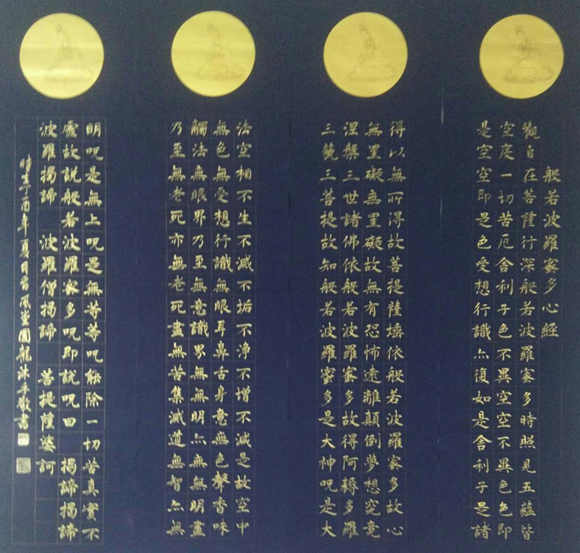 般若波羅蜜多心經
觀自在菩薩行深般若波羅蜜多時照見五蘊皆
空度一切苦厄舍利子色不異空空不異色色即
是空空即是色受想行識亦復如是舍利子是諸
得以無所得故菩提薩埵依般若波羅蜜多故心
無罣礙無罣礙故無有恐怖遠離顛倒夢想究竟
涅槃三世諸佛依般若波羅蜜多故得阿耨多羅
三藐三菩提故知般若波羅蜜多是大神呪是大
法空相不生不滅不垢不淨不增不減是故空中
無色無受想行識無眼耳鼻舌身意無色聲香味
觸法無眼界乃至無意識界無無明亦無無明盡
乃至無老死亦無老死盡無苦集滅道無智亦無
明呪是無上呪是無等等呪能除一切苦真實不
虛故說般若波羅蜜多呪即說呪曰 揭諦揭諦
波羅揭諦 波羅僧揭諦 菩提薩婆訶
酉年夏月 沐手敬書